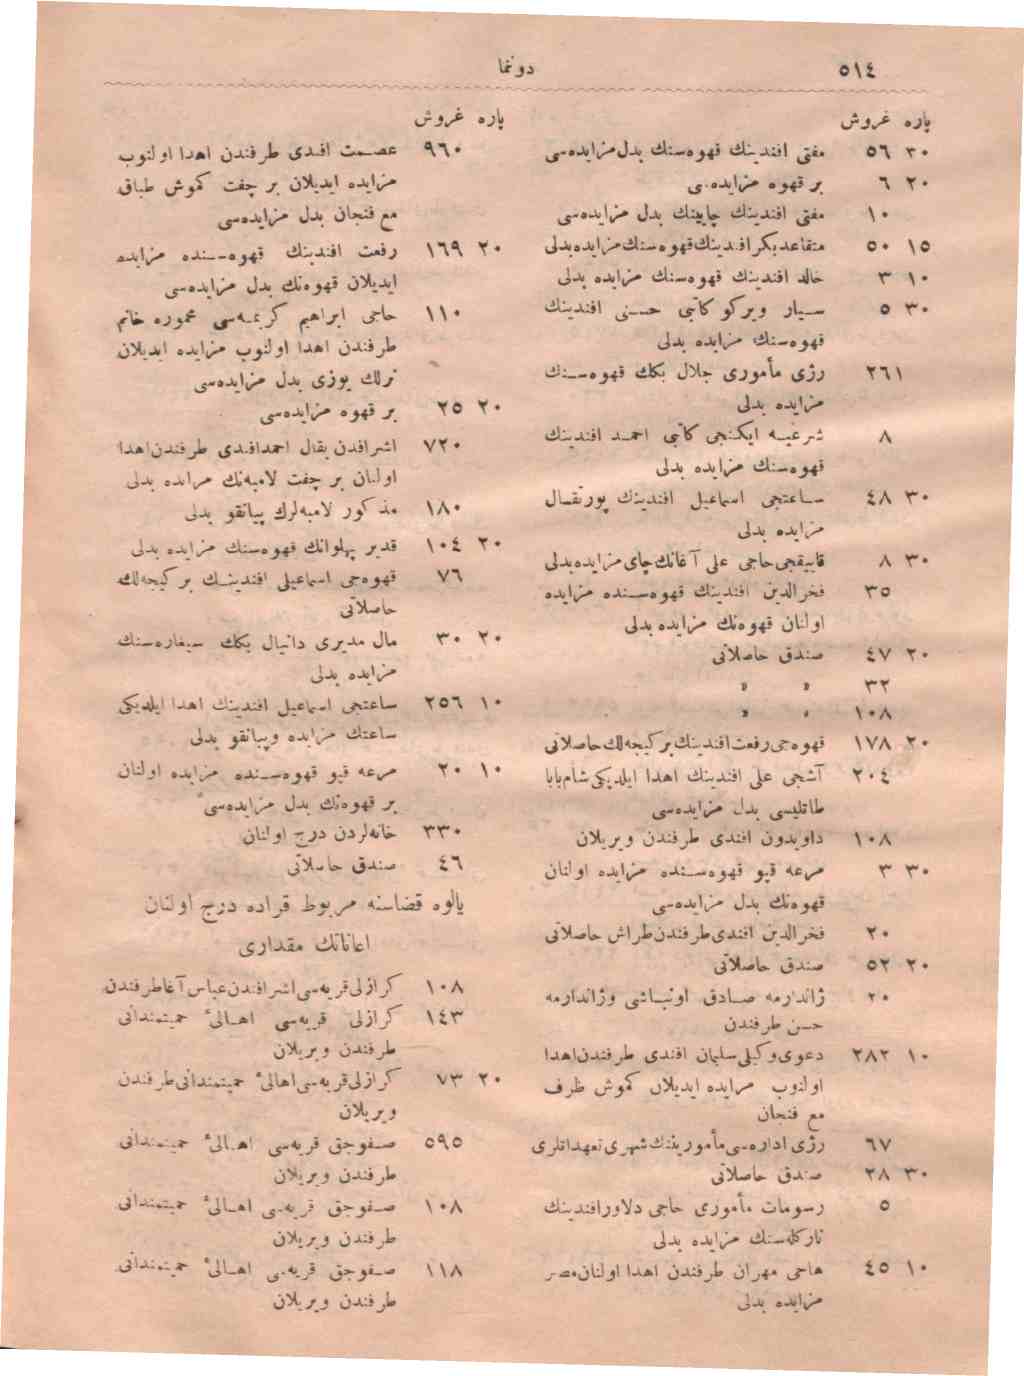 ٥١٤
دوننما
پاره غروش
٣٠ ٥٦ مفتی افندینك قهوه‌سنك بدل مزایده‌سی
٢٠ ٦ بر قهوه مزایده‌سی
١٠ مفتی افندینك چایینك بدل مزایده‌سی
١٥ ٥٠ متقاعد بكر افندینك قهوه‌سنك مزایده بدلی
١٠ ٣ خالد افندینك قهوه‌سنك مزایده بدلی
٣٠ ٥ سیار ویركو كاتبی حسنی افندینك
قهوه‌سنك مزایده بدلی
٢٦١ رژی مأموری جلال بكك قهوه‌سنك
مزایده بدلی
٨ شرعیه ایكنجی كاتبی احمد افندینك
قهوه‌سنك مزایده بدلی
٣٠ ٤٨ ساعتجی اسماعیل افندینك پورتقال
مزایده بدلی
٣٠ ٨ قایقجی حاجی علی آغانك چای مزایده بدلی
٣٥ فخرالدین افندینك قهوه‌سنده مزایده
اولنان قهوه‌نك مزایده بدلی
٢٠ ٤٧ صندق حاصلاتی
٣٢ » »
١٠٨ » »
٢٠ ١٧٨ قهوه‌جی رفعت افندینك بر كیجه‌لك حاصلاتی
٢٠٤ آشجی علی افندینك اهدا ایلدیكی شام‌بابا
طاتلیسی بدل مزایده‌سی
١٠٨ داویدون افندی طرفندن ویریلان
٣٠ ٣ مرعه قیو قهوه‌سنده مزایده اولنان
قهوه‌نك بدل مزایده‌سی
٢٠ فخرالدین افندی طرفندن طراش حاصلاتی
٢٠ ٥٢ صندق حاصلاتی
٢٠ ژاندارمه صادق اونباشی وژاندارمه
حسن طرفندن
١٠ ٢٨٢ دعوی وكیلی سلیمان افندی طرفندن اهدا
اولنوب مزایده ایدیلان كموش ظرف
مع فنجان
٦٧ رژی اداره‌سی مأمورینك شهری تعهداتلری
٣٠ ٢٨ صندق حاصلاتی
٥ رسومات مأموری حاجی دلاور افندینك
ناركله‌سنك مزایده بدلی
١٠ ٤٥ مهران طرفندن اهدا اولنان
مزایده بدلی
پاره غروش
٩٦٠ عصمت افندی طرفندن اهدا اولنوب
مزایده ایدیلان بر چفت كموش طباق
مع فنجان بدل مزایده‌سی
٢٠ ١٦٩ رفعت افندینك قهوه‌سنده مزایده
ایدیلان قهوه‌نك بدل مزایده‌سی
١١٠ حاجی ابراهیم كریمه‌سی محموره خانم
طرفندن اهدا اولنوب مزایده ایدیلان
ترلك یوزی بدل مزایده‌سی
٢٠ ٢٥ بر قهوه مزایده‌سی
٧٢٠ اشرافدن بقال احمد افندی طرفندن اهدا
اولنان بر چفت لامبه‌نك مزایده بدلی
١٨٠ مذكور لامبه‌لرك پیانقو بدلی
٢٠ ١٠٤ قدیر پهلوانك قهوه‌سنك مزایده بدلی
٧٦ قهوه‌جی اسماعیلی افندینك بر كیجه‌لك
حاصلاتی
٢٠ ٣٠ مال مدیری دانیال بكك سیغاره‌سنك
مزایده بدلی
١٠ ٢٥٦ ساعتجی اسماعیل افندینك اهدا ایلدیكی
ساعتك مزایده وپیانقو بدلی
١٠ ٢٠ مرعه قیو قهوه‌سنده مزایده اولنان
بر قهوه‌نك بدل مزایده‌سی
٣٣٠ خانه‌لردن درج اولنان
٤٦ صندق حاصلاتی
یالوه قضاسنه مربوط قراده درج اولنان
اعاناتك مقداری
١٠٨ كرازلی قریه‌سی اشرافندن عباس آغا طرفندن
١٤٣ كرازلی قریه‌سی اهالیٔ حمیتمندانی
طرفندن ویریلان
٢٠ ٧٣ كرازلی قریه‌سی اهالیٔ حمیتمندانی طرفندن
ویریلان
٥٩٥ صغوجق قریه‌سی اهالیٔ حمیتمندانی
طرفندن ویریلان
١٠٨ صغوجق قریه‌سی اهالیٔ حمیتمندانی
طرفندن ویریلان
١١٨ صغوجق قریه‌سی اهالیٔ حمیتمندانی
طرفندن ویریلان